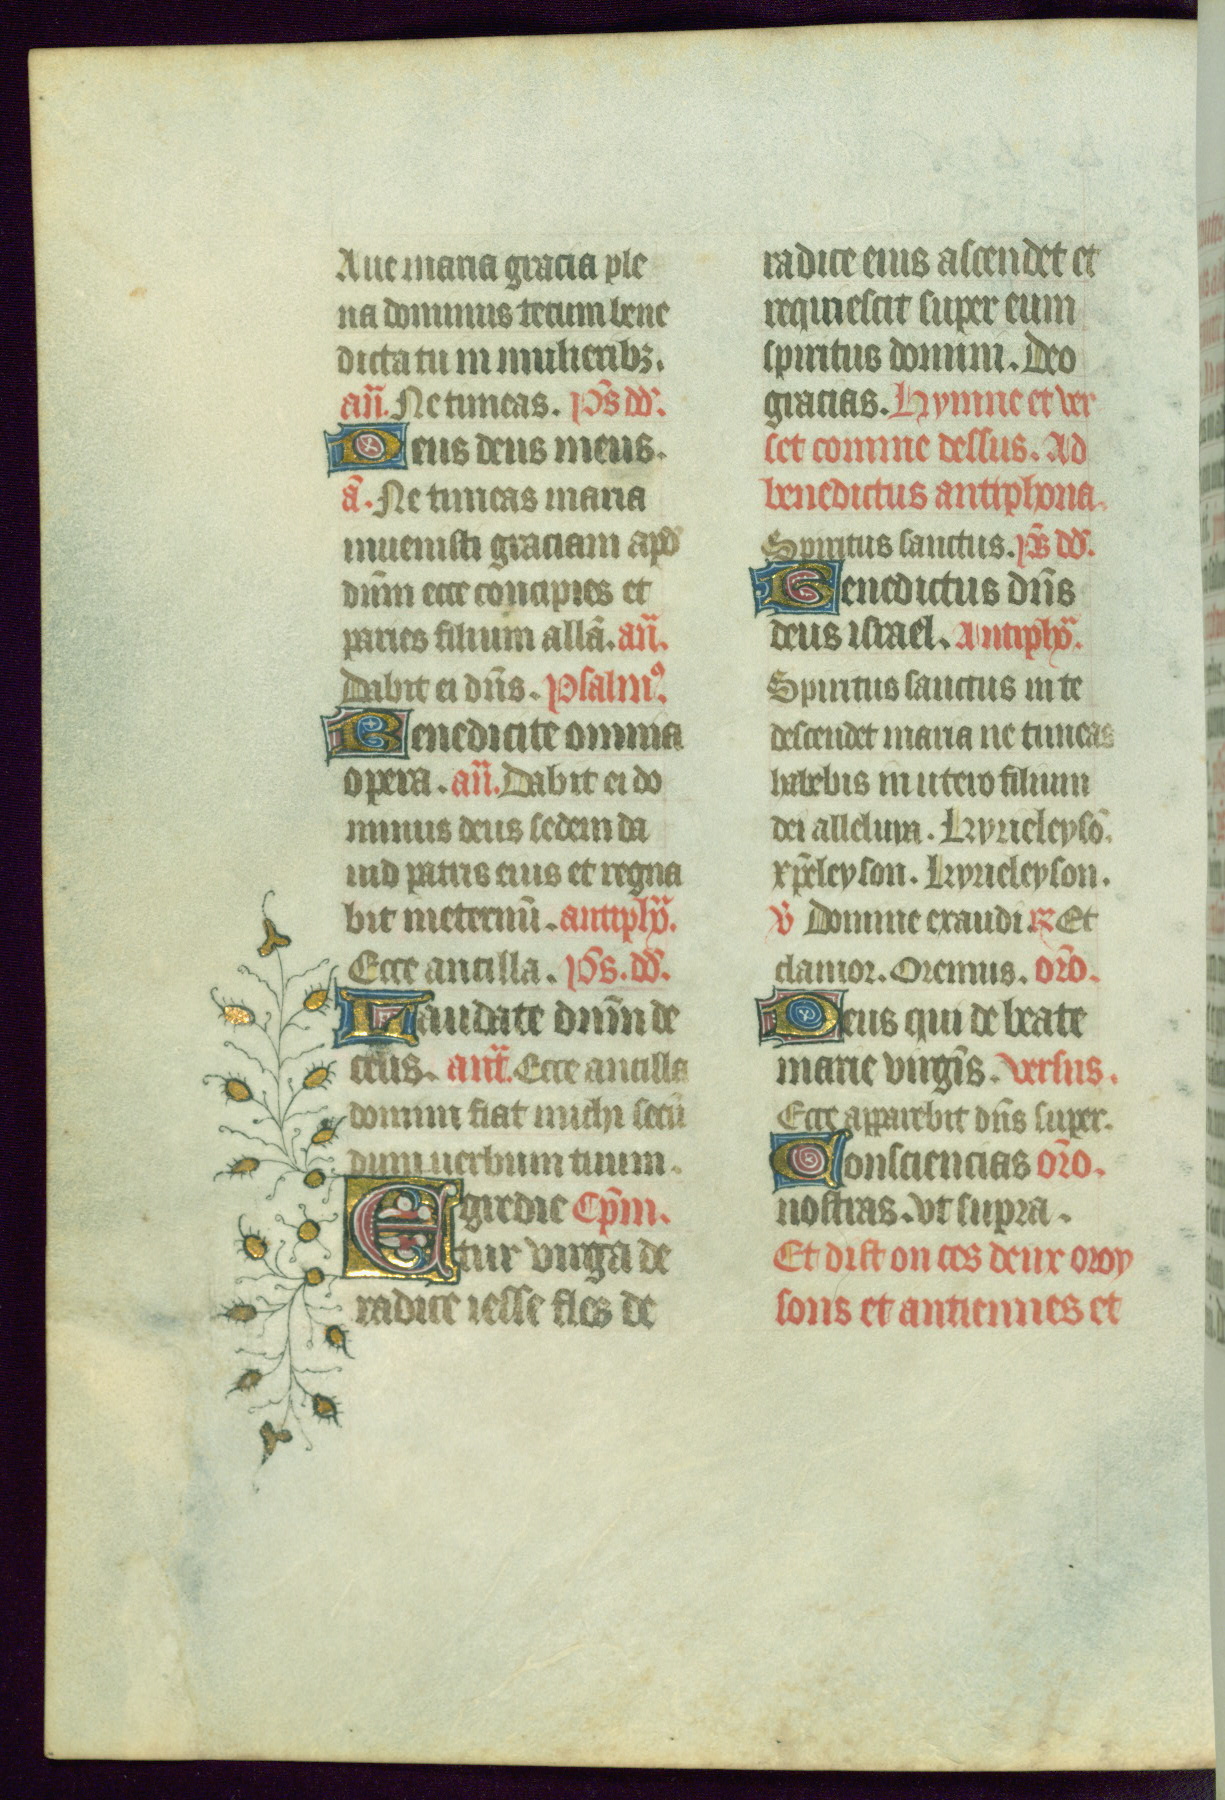 Aue maria gracia ple
na dominus tecum bene
dicta tu in mulieribꝫ.
añ. Ne timeas. p̄s dd̄.
Deus deus meus.
ā. Ne timeas maria
inuenisti graciam apd̄
dūm ecce concipies et
paries filium allā. añ.
Dabit ei dn̄s. psalmꝰ.
Benedicite omnia
opera. añ. Dabit ei do
minus deus sedem da
uid patris eius et regna
bit ineternū. antiphȳ.
Ecce ancilla. p̄s. dd̄.
Laudate dnm̄ de
celis. ant̄. Ecce ancilla
domini fiat michi secū
dum uerbum tuum.
Egredie Cpm̄.
tur virga de
radice iesse flos de
radice eius ascendet et
requiescit super eum
spiritus domini. Deo
gracias. Hymne et ver
set comme dessus. Ad
benedictus antiphona.
Spiritus sanctus. p̄s dd̄.
Benedictus dn̄s
deus israel. Antiphȳ.
Spiritus sanctus in te
descendet maria ne timeas
habebis in utero filium
dei alleluya. Kyrieleysō.
xp̄eleyson. kyrieleyson.
v̄ Domine exaudi. ℟ Et
clamor. Oremus. or̄o.
Deus qui de beate
marie virgīs. versus.
Ecce apparebit dn̄s super.
Consciencias or̄o.
nostras. vt supra.
Et dist on ces deux oroy
sons et antiennes et